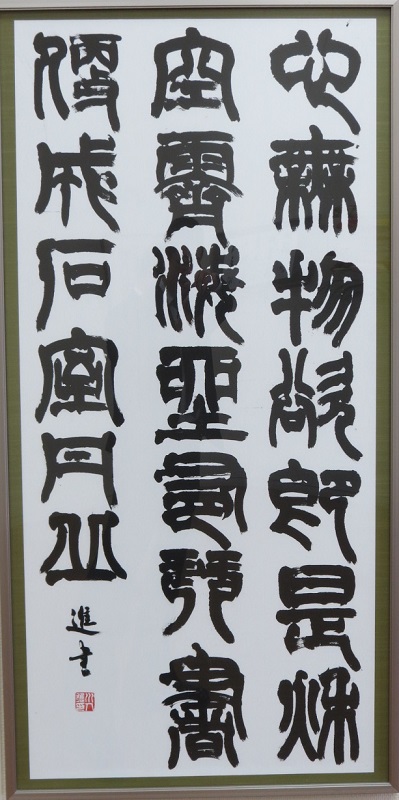 心無物欲即是秋
空霽海坐有琴書
便成石室丹丘
進書